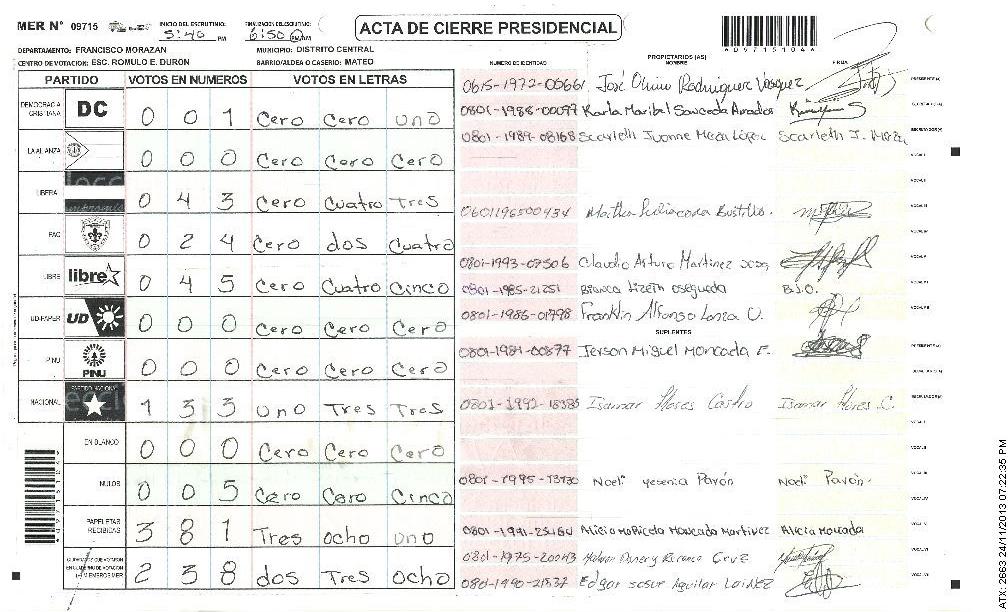 MER N° 09715 INICIO DEL ESCRUTINIO: 5:40 PM FINALIZACION DEL ESCRUTINIO: 6:50 PM
ACTA DE CIERRE PRESIDENCIAL
DEPARTAMENTO: FRANCISCO MORAZAN MUNICIPIO: DISTRITO CENTRAL
CENTRO DE VOTACION: ESC. ROMULO E. DURON BARRIO/ALDEA O CASERIO: MATEO
NUMERO DE IDENTIDAD PROPIETARIOS (AS) NOMBRE FIRMA
PARTIDO VOTOS EN NUMEROS VOTOS EN LETRAS
DEMOCRACIA CRISTIANA DC 0 0 1 Cero Cero uno
LA ALIANZA 0 0 0 Cero Cero Cero
LIBERAL 0 4 3 Cero Cuatro Tres
PAC 0 2 4 Cero dos Cuatro
LIBRE libre 0 4 5 Cero Cuatro Cinco
UD-FAPER UD 0 0 0 Cero Cero Cero
PINU PINU 0 0 0 Cero Cero Cero
NACIONAL PARTIDO NACIONAL 1 3 3 uno Tres Tres
EN BLANCO 0 0 0 Cero Cero Cero
NULOS 0 0 5 Cero Cero Cinco
PAPELETAS RECIBIDAS 3 8 1 Tres ocho uno
2 3 8 dos Tres ocho
0615-1972-00661 José Rodriguez Vasquez PRESIDENTE(A)
0801-1988-00099 Karla Maribel Sauceda SECRETARIO(A)
0801-1989-08168 Scarleth Ivonne Meza López Scarleth J. Meza ESCRUTADOR(A)
0601196500434 Martha Bustillo.
0801-1993-07506 Claudio Arturo Martinez
0801-1985-21251 Bianca Lizeth oseguera B.J.O.
0801-1986-01798 Franklin Alfonso Lanza U.
SUPLENTES
0801-1981-00877 Jerson Miguel Moncada F.
0801-1992-18385 Isamar Flores Castro Isamar Flores C.
0801-1995-13730 Noeli yesenia Pavón Noeli Pavón.
0801-1991-25160 Alicia Moncada Martinez Alicia Moncada
0801-1975-20043 Cruz
0801-1990-21537 Edgar Josue Aguilar Lainez
ATX 2663 24/11/2013 07:22:35 PM